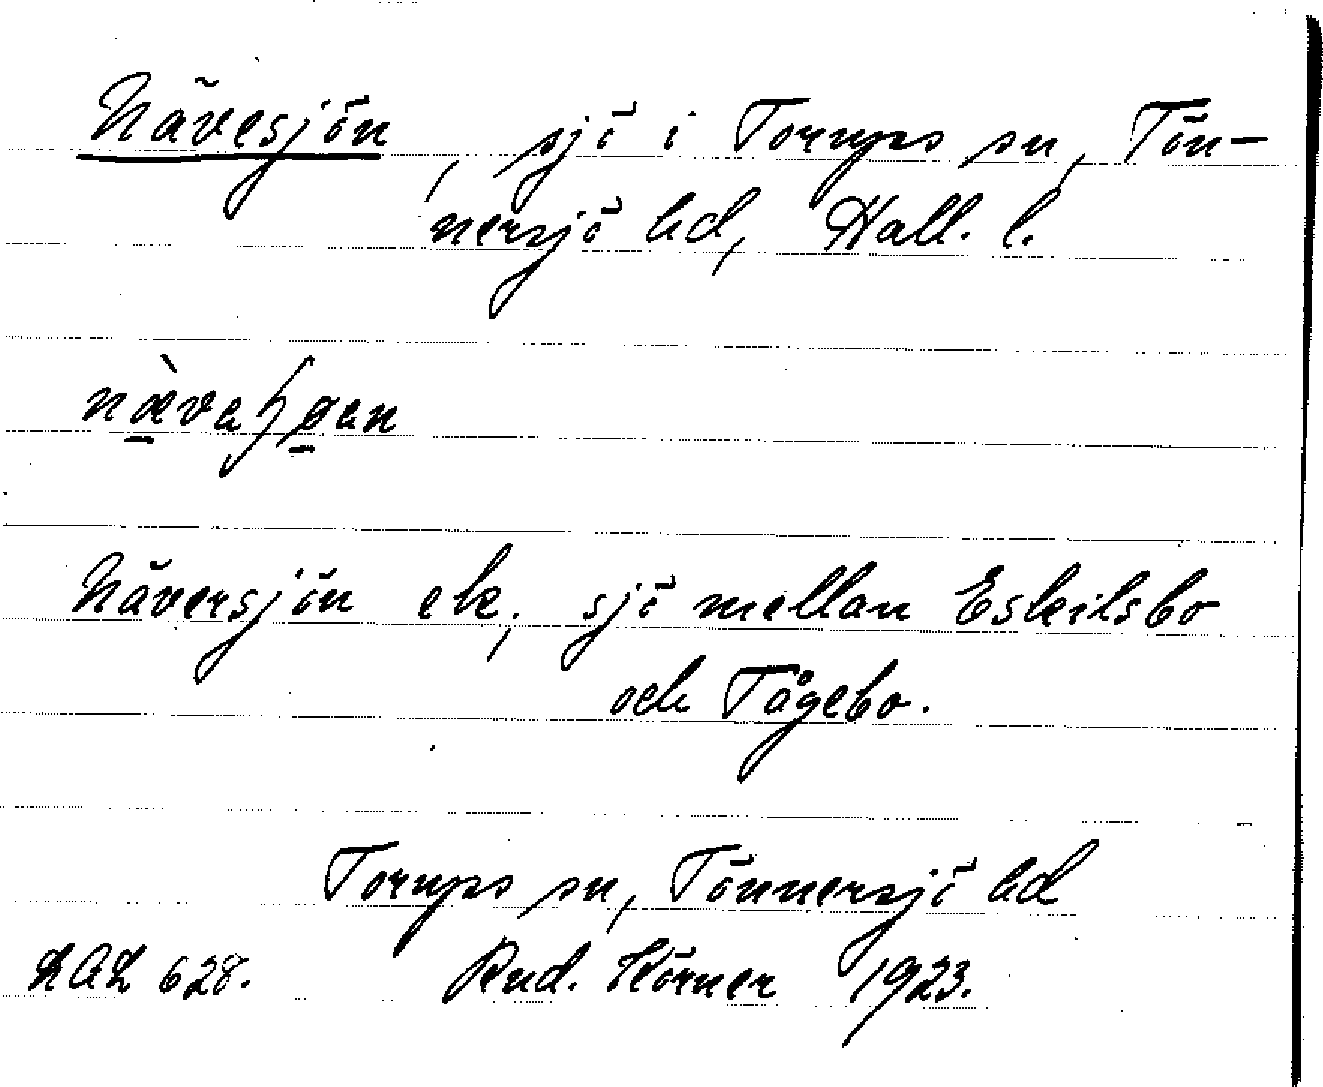 Nävesjön, sjö i Torups sn, Tön-
nersjö hd, Hall. l.
Näversjön ek, sjö mellan Eskilsbo
och Tågebo.
Torups sn, Tönnersjö hd
LAL 628. Rud. Körner 1923.